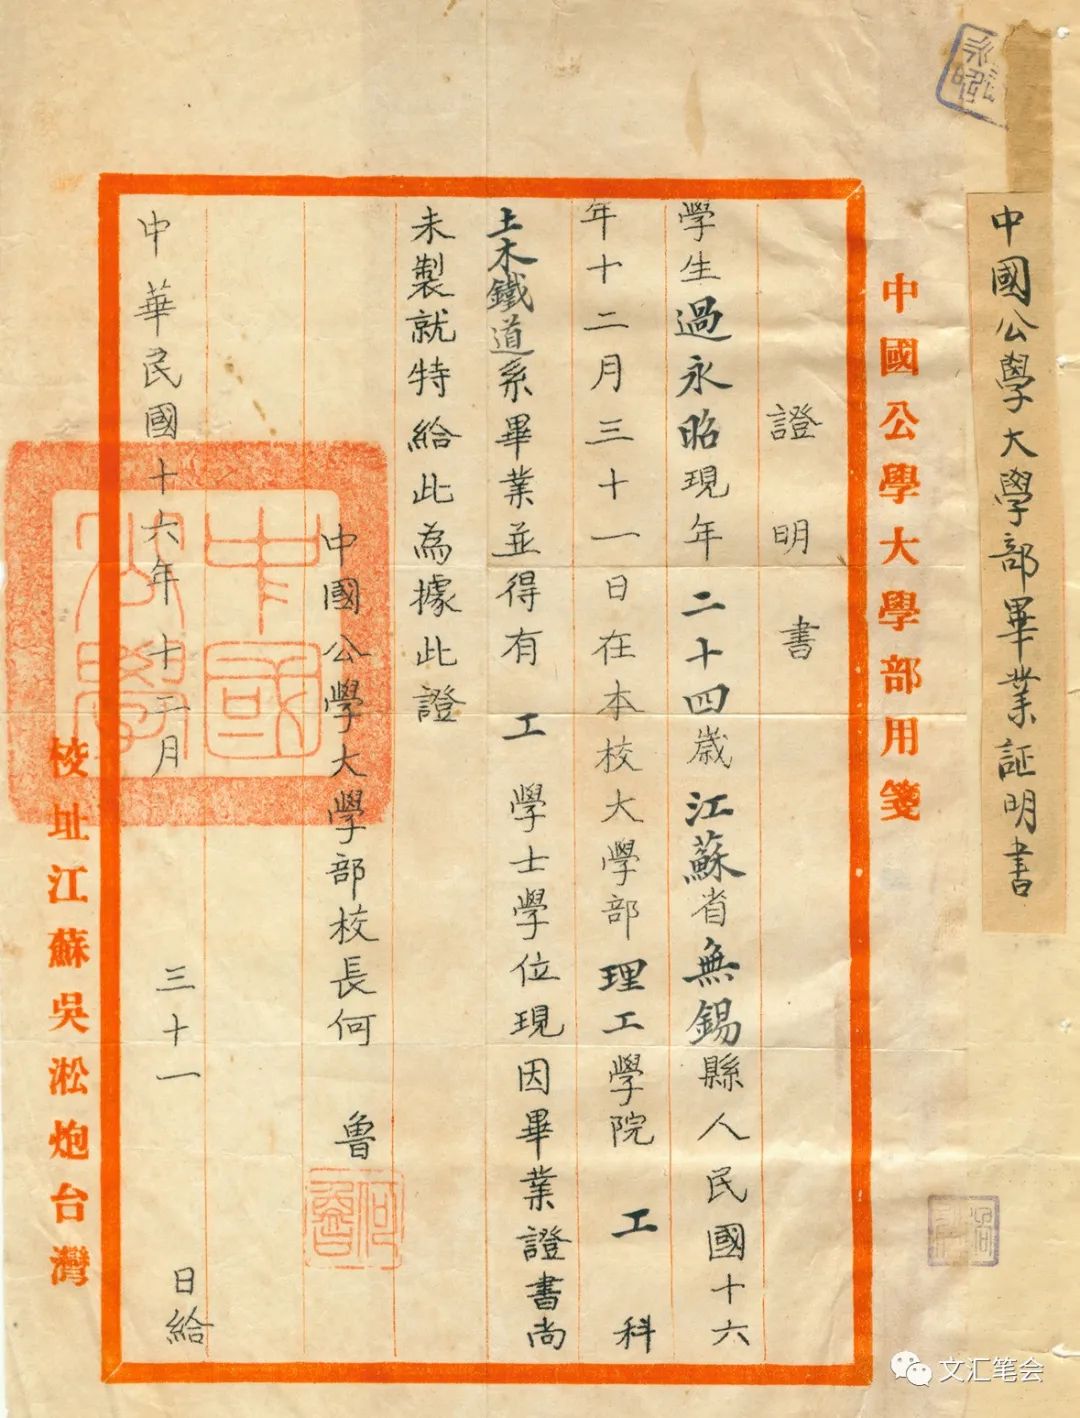 中國公學大学部畢業証明書
中國公學大學部用箋
證明書
學生過永昭現年二十四歲江蘇省無錫縣人民國十六
年十二月三十一日在本校大學部理工學院工科
土木鐵道系畢業並得有工學士學位現因畢業證書尚
未製就特給此為據此證
中國公學大學部校長何魯
中華民國十六年十二月三十一日給
校址江蘇吳淞炮台灣
中國公學
何魯
文汇笔会